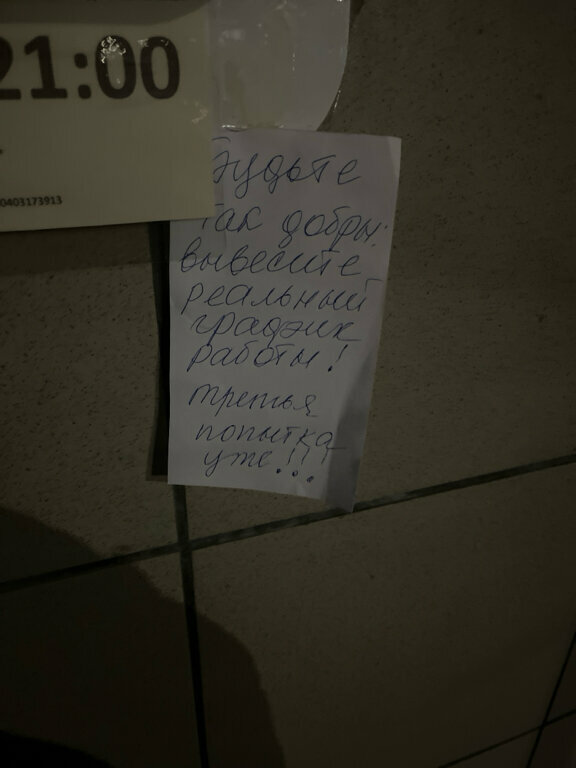 21:00
0403173913
Будьте
так добры:
вывесите
реальный
график
работы!
третья
попытка
уже!!!